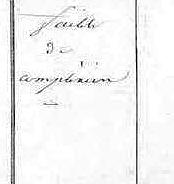 faible
de
complexion